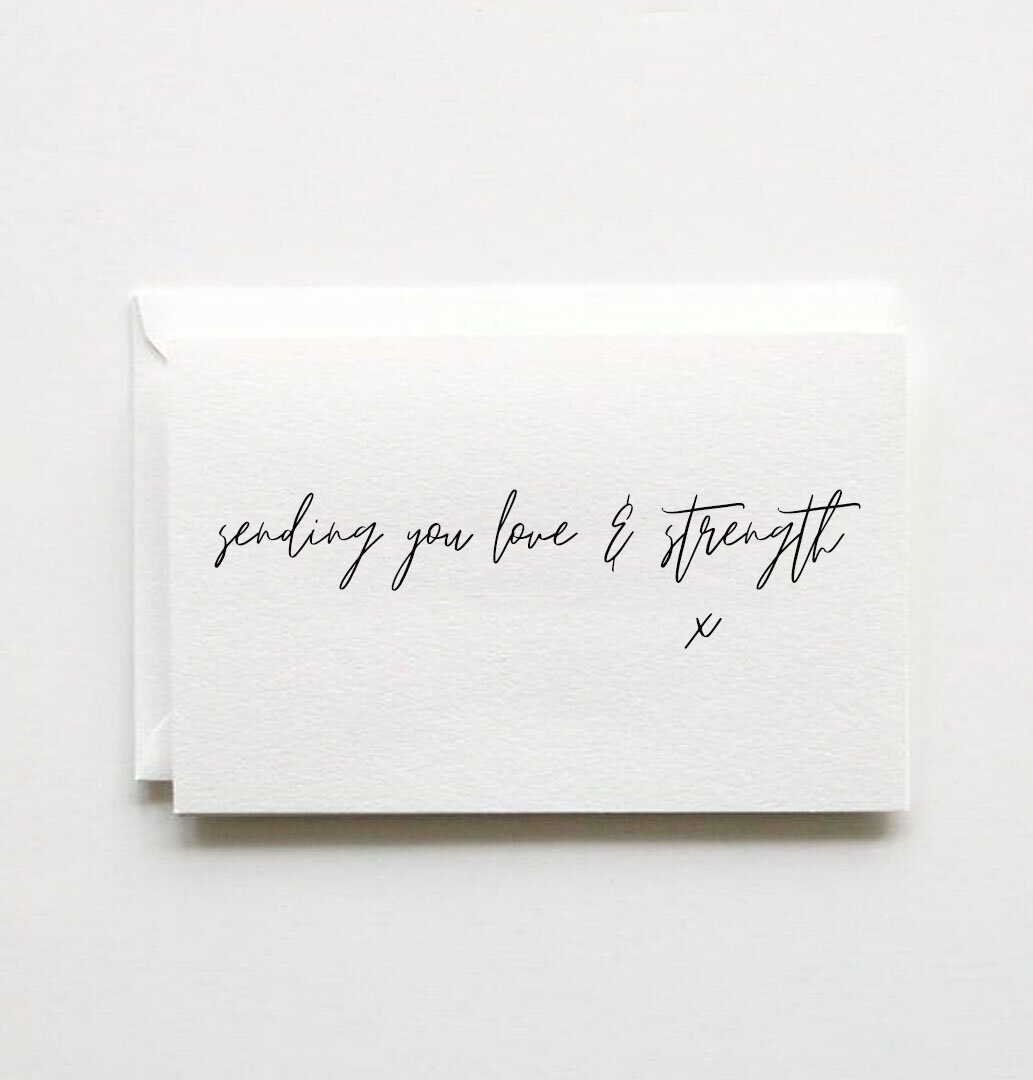 sending you love & strength
x